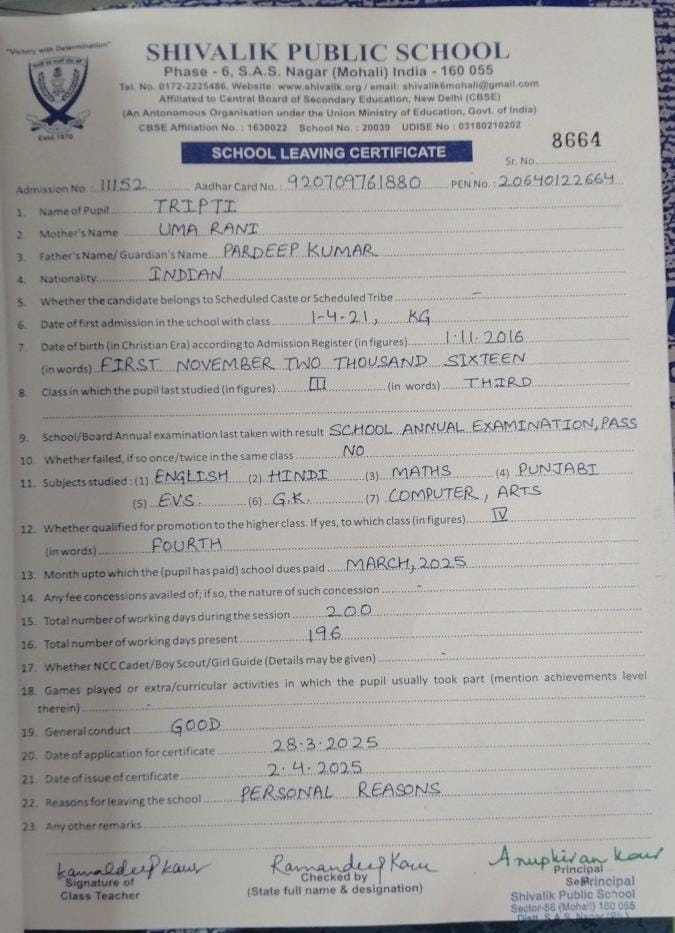 "Victory with Determination"
SHIVALIK PUBLIC SCHOOL
Phase - 6, S.A.S. Nagar (Mohali) India - 160 055
Tel. No. 0172-2225486, Website: www.shivalik.org / email: shivalik6mohali@gmail.com
Affiliated to Central Board of Secondary Education, New Delhi (CBSE)
(An Antonomous Organisation under the Union Ministry of Education, Govt. of India)
CBSE Affiliation No. : 1630022 School No. : 20039 UDISE No : 03180210202
Estd. 1970
SCHOOL LEAVING CERTIFICATE
Sr. No. 8664
Admission No. 11152 Aadhar Card No.: 920709761880 PEN No.: 20640122664
1. Name of Pupil TRIPTI
2. Mother's Name UMA RANI
3. Father's Name/ Guardian's Name PARDEEP KUMAR
4. Nationality INDIAN
5. Whether the candidate belongs to Scheduled Caste or Scheduled Tribe -
6. Date of first admission in the school with class 1-4-21, KG
7. Date of birth (in Christian Era) according to Admission Register (in figures) 1.11.2016
(in words) FIRST NOVEMBER TWO THOUSAND SIXTEEN
8. Class in which the pupil last studied (in figures) III (in words) THIRD
9. School/Board Annual examination last taken with result SCHOOL ANNUAL EXAMINATION, PASS
10. Whether failed, if so once/twice in the same class NO
11. Subjects studied : (1) ENGLISH (2) HINDI (3) MATHS (4) PUNJABI
(5) EVS (6) G.K. (7) COMPUTER, ARTS
12. Whether qualified for promotion to the higher class. If yes, to which class (in figures) IV
(in words) FOURTH
13. Month upto which the (pupil has paid) school dues paid MARCH, 2025
14. Any fee concessions availed of; if so, the nature of such concession -
15. Total number of working days during the session 200
16. Total number of working days present 196
17. Whether NCC Cadet/Boy Scout/Girl Guide (Details may be given) -
18. Games played or extra/curricular activities in which the pupil usually took part (mention achievements level
therein) -
19. General conduct GOOD
20. Date of application for certificate 28.3.2025
21. Date of issue of certificate 2.4.2025
22. Reasons for leaving the school PERSONAL REASONS
23. Any other remarks
Kamaldeep Kaur Ramandeep Kaur Anupkiran Kaur
Signature of Checked by Principal
Class Teacher (State full name & designation) Principal
Shivalik Public School
Sector-56 (Mohali) 160 055
Distt. S.A.S. Nagar (Pb.)